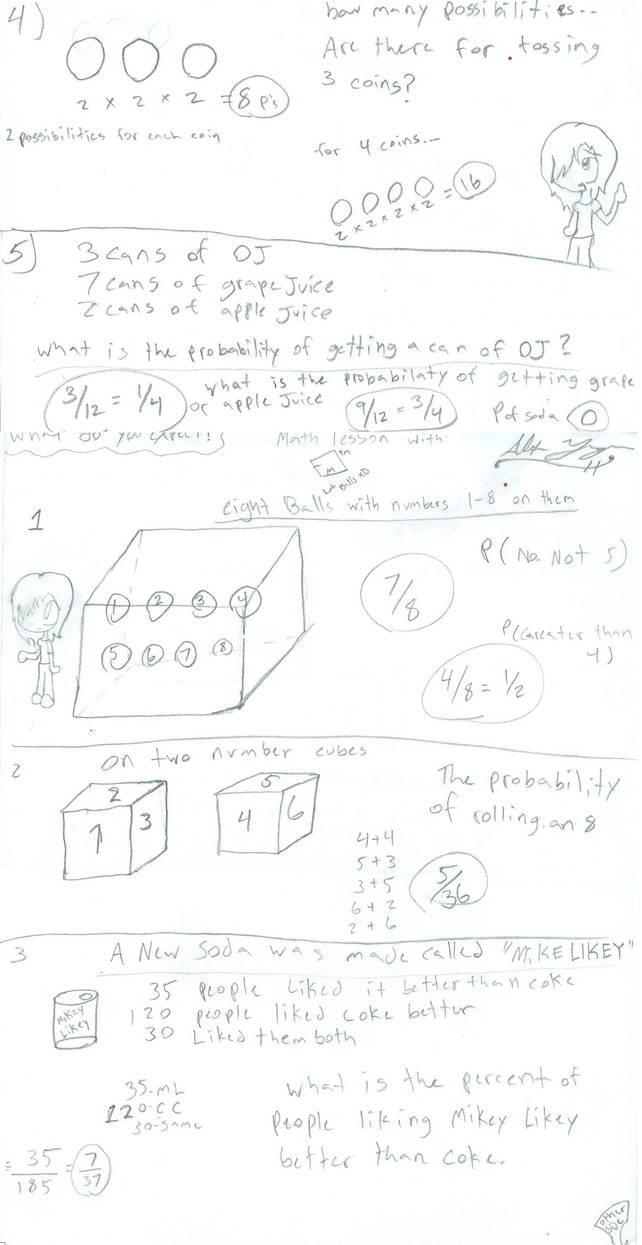 4)
how many possibilities...
Are there for tossing
3 coins?
2 x 2 x 2 = 8 p's
2 possibilities for each coin
for 4 coins...
2 x 2 x 2 x 2 = 16
5)
3 cans of OJ
7 cans of grape Juice
2 cans of apple Juice
What is the probability of getting a can of OJ?
3/12 = 1/4
What is the probabilaty of getting grape
or apple Juice
9/12 = 3/4
P of soda 0
What do you expect!!
Math lesson with
M
TM
eight Balls with numbers 1-8 on them
1
1 2 3 4
5 6 7 8
P(No. Not 5)
7/8
P(Greater than
4)
4/8 = 1/2
2
on two number cubes
2 1 3
5 4 6
The probability
of rolling an 8
4+4
5+3
3+5
6+2
2+6
5/36
3
A New Soda was made called "MiKE LIKEY"
Mikey
Likey
35 people Liked it better than coke
120 people liked coke better
30 Liked them both
35-ML
120-CC
30-same
What is the percent of
People liking Mikey Likey
better than coke.
35/185 = 7/37
other
side